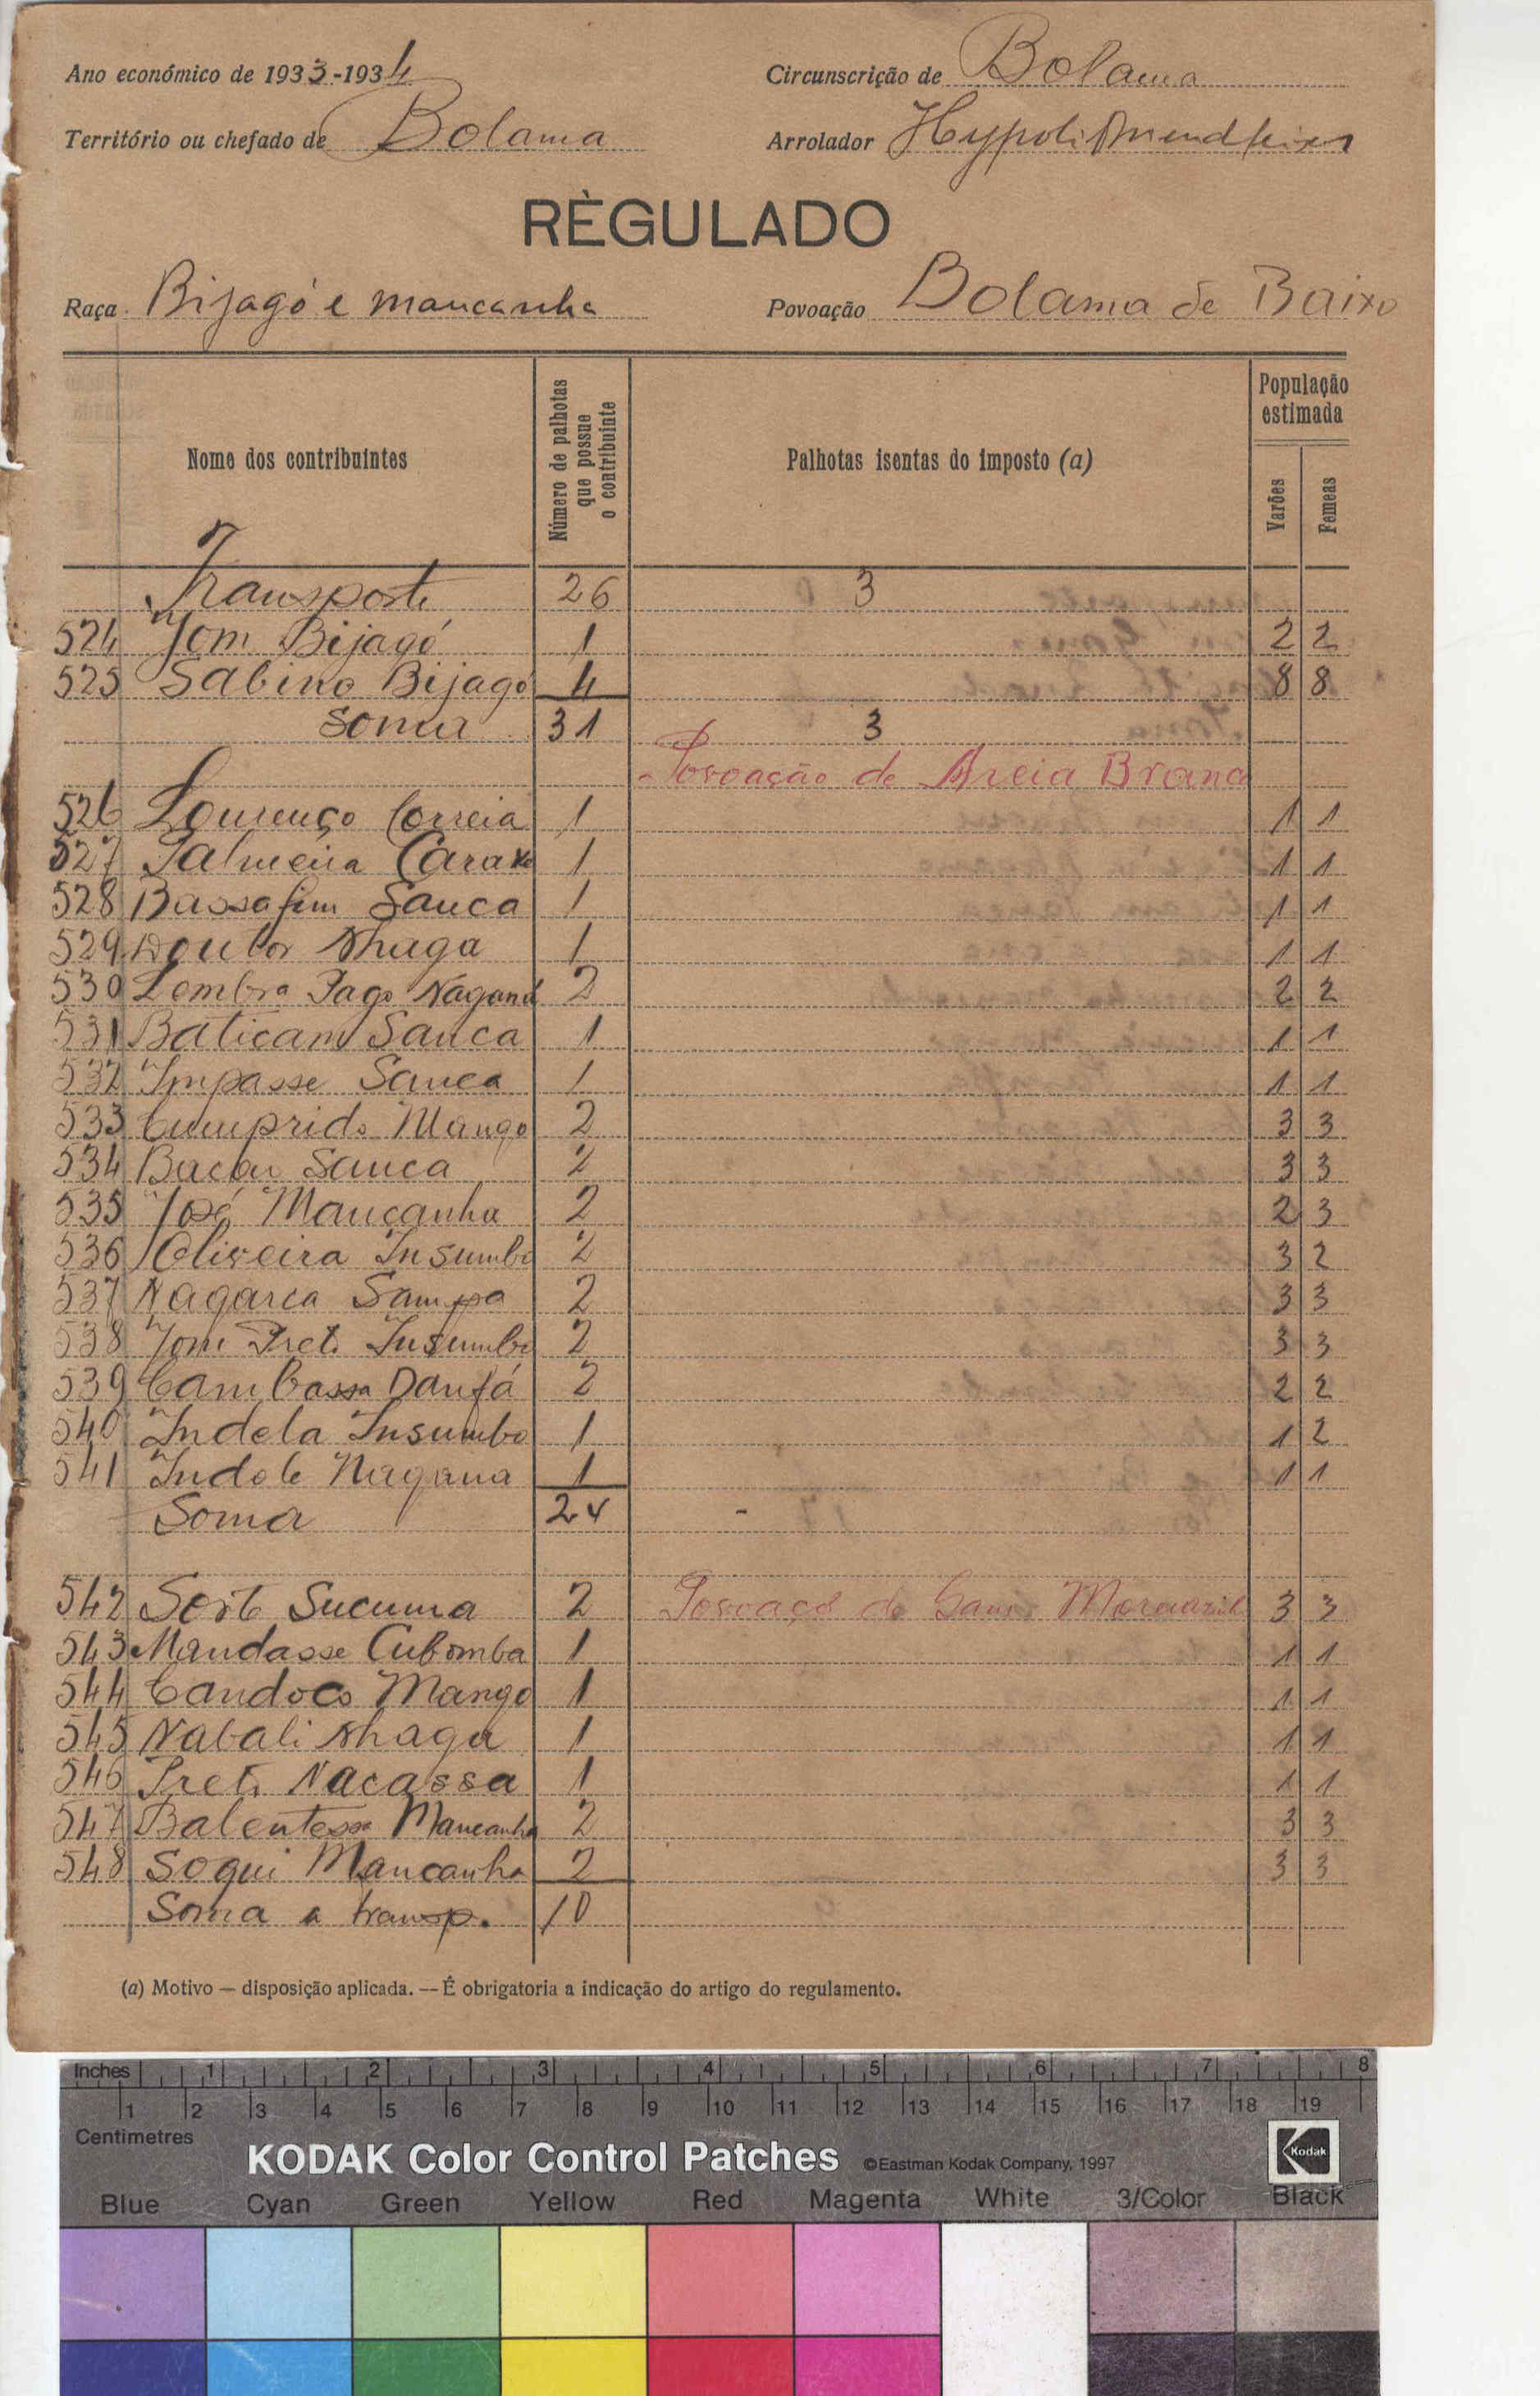 Ano económico de 1933-1934
Circunscrição de Bolama
Território ou chefado de Bolama
Arrolador
RÈGULADO
Raça Bijagó e mancanha
Povoação Bolama de Baixo
Nome dos contribuintes
Número de palhotas que possue o contribuinte
Palhotas isentas do imposto (a)
População estimada
Varões
Femeas
Transporte 26 3
524 Jom Bijagó 1 2 2
525 Sabino Bijagó 4 8 8
Soma 31 3
Povoação de Areia Branca
526 Lourenço Correia 1 1 1
527 Palmeira 1 1 1
528 Bassafim Sanca 1 1 1
529 Doutor Nhaga 1 1 1
530 Lembra Pago Nagana 2 2 2
531 Baticam Sanca 1 1 1
532 Impasse Sanca 1 1 1
533 Cumprido Mango 2 3 3
534 Bacar Sanca 2 3 3
535 José Mancanha 2 2 3
536 Oliveira Insumbo 2 3 2
537 Nagarca Sampa 2 3 3
538 Jom Preto Insumbo 2 3 3
539 Cambassa Danfá 2 2 2
540 Indela Insumbo 1 1 2
541 Indole Nagana 1 1 1
Soma 24 -
542 Sorte Sucuma 2 Povoação de Gam 3 3
543 Mandasse Cubomba 1 1 1
544 Candoco Mango 1 1 1
545 Nabali Nhaga 1 1 1
546 Preto Nacassa 1 1 1
547 Balentessa Mancanha 2 3 3
548 Soqui Mancanha 2 3 3
Soma a transp. 10
(a) Motivo — disposição aplicada. — É obrigatoria a indicação do artigo do regulamento.
Inches 1 2 3 4 5 6 7 8
1 2 3 4 5 6 7 8 9 10 11 12 13 14 15 16 17 18 19
Centimetres
KODAK Color Control Patches ©Eastman Kodak Company, 1997 Kodak
Blue Cyan Green Yellow Red Magenta White 3/Color Black